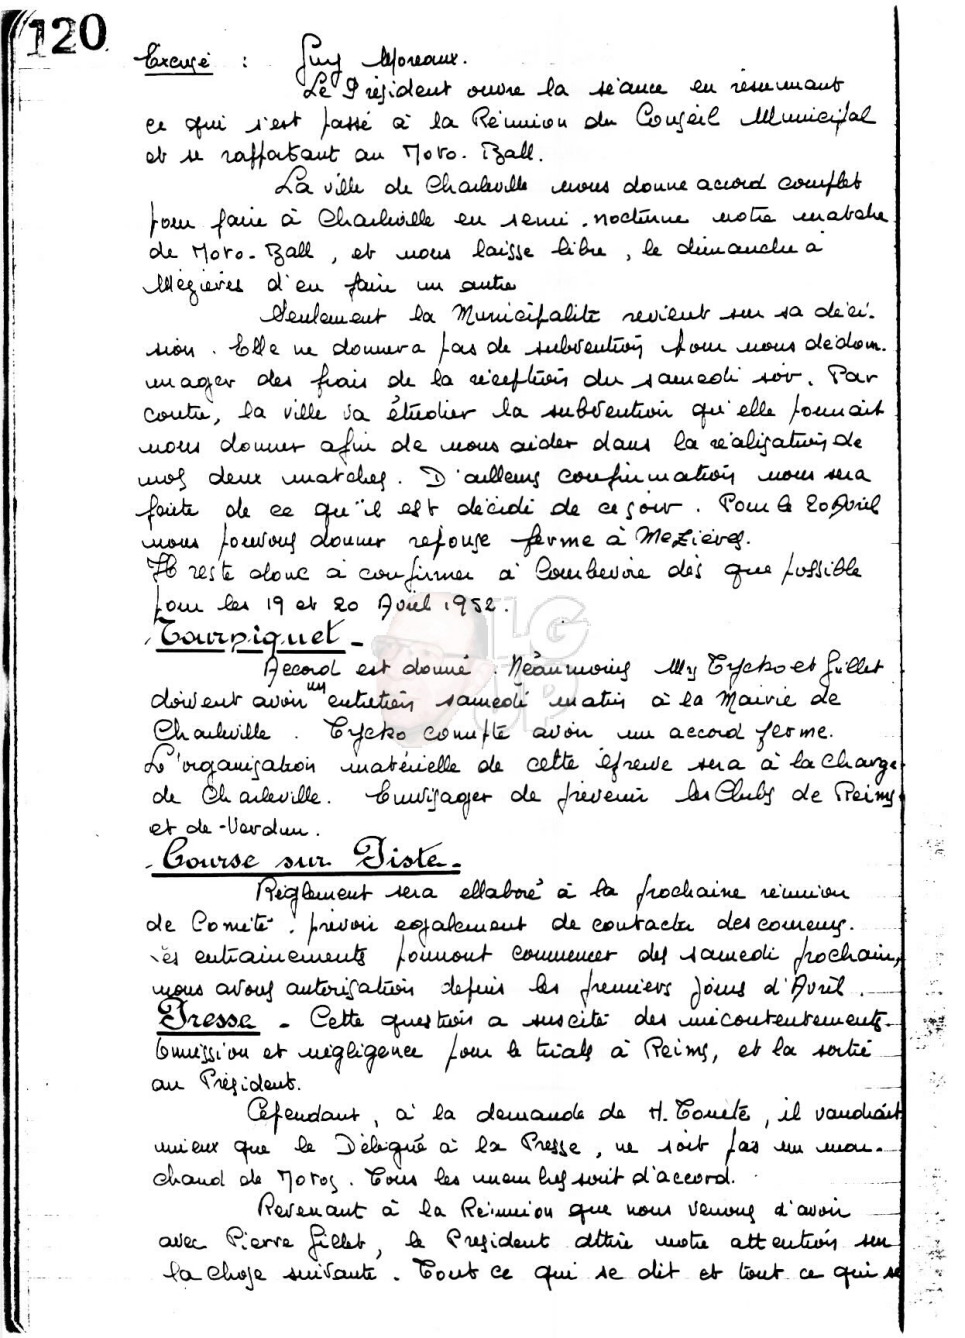 120
Excusé : Guy Moreaux.
Le Président ouvre la séance en résumant
ce qui s'est passé à la Réunion du Conseil Municipal
et se rapportant au Moto-Ball.
La ville de Charleville nous donne accord complet
pour faire à Charleville en semi-nocturne notre matche
de Moto-Ball, et nous laisse libre, le dimanche à
Mézières d'en faire un autre
Seulement la Municipalité revient sur sa déci-
sion. Elle ne donnera pas de subvention pour nous dédom-
mager des frais de la réception du samedi soir. Par
contre, la ville va étudier la subvention qu'elle pourrait
nous donner afin de nous aider dans la réalisation de
nos deux matches. D'ailleurs confirmation nous sera
faite de ce qu'il est décidé de ce soir. Pour le 20 Avril
nous pouvons donner réponse ferme à Mezières.
Il reste donc à confirmer à Courbevoie dès que possible
pour les 19 et 20 Avril 1952.
Tourniquet -
Accord est donné. Néanmoins MM Tycko et Gillet
doivent avoir un entretien samedi matin à la Mairie de
Charleville. Tycko compte avoir un accord ferme.
L'organisation matérielle de cette épreuve sera à la charge
de Charleville. Envisager de prévenir les Clubs de Reims
et de Verdun.
Course sur Piste -
Règlement sera ellaboré à la prochaine réunion
de Comité. prévoir également de contacter des coureurs.
Les entrainements pourront commencer dès samedi prochain,
nous avons autorisation depuis les premiers jours d'Avril.
Presse - Cette question a suscité des mécontentements
Omission et négligence pour le trials à Reims, et la sortie
au Président.
Cependant, à la demande de H. , il vaudrait
mieux que le Délégué à la Presse, ne soit pas un mar-
chand de Motos. Tous les membres soit d'accord.
Revenant à la Réunion que nous venons d'avoir
avec Pierre Gillet, le Président attire notre attention sur
la chose suivante. Tout ce qui se dit et tout ce qui se
LG
UP